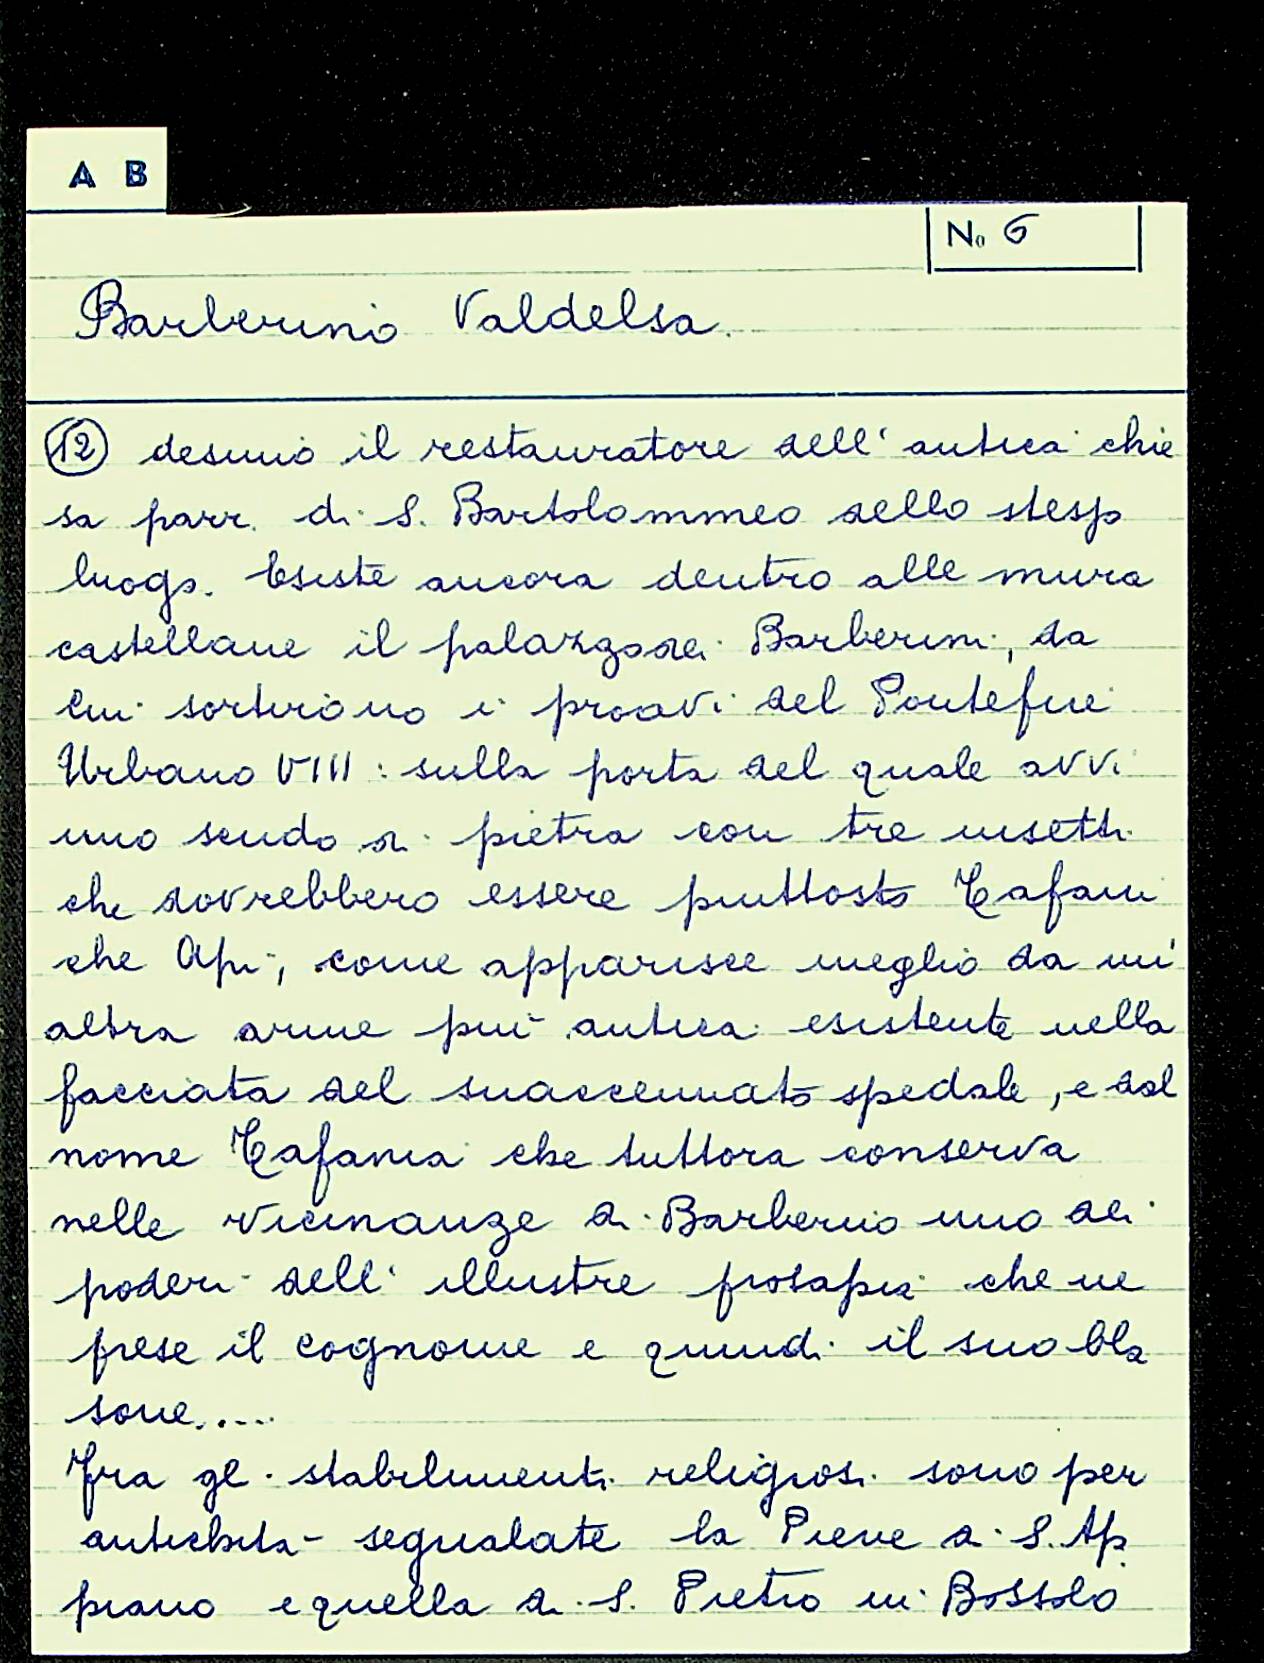 A B
No 6
Barberino Valdelsa.
12 desimio il restauratore dell' antica chie
sa parr. di S. Bartolommeo dello stesso
luogo. Esiste ancora dentro alle mura
castellane il palazzo dei Barberini, da
cui sortirono i proavi del Pontefice
Urbano VIII: sulla porta del quale avvi
uno scudo di pietra con tre insetti
che dovrebbero essere piuttosto Tafani
che Api, come apparisce meglio da un'
altra arme più antica esistente nella
facciata del suaccennato spedale, e dal
nome Tafania che tuttora conserva
nelle vicinanze di Barberino uno dei
poderi dell' illustre prosapia che ne
prese il cognome e quindi il suo bla
sone....
Fra gli stabilimenti religiosi sono per
antichità segnalate la Pieve di S. Ap
piano e quella di S. Pietro in Bossolo